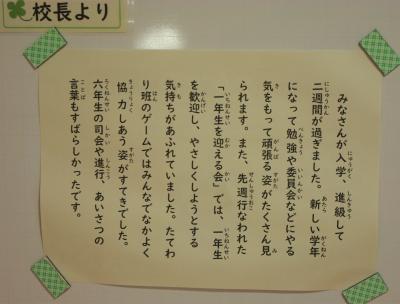 校長より
みなさんが入学、進級して
二週間が過ぎました。新しい学年
になって勉強や委員会などにやる
気をもって頑張る姿がたくさん見
られます。また、先週行なわれた
「一年生を迎える会」では、一年生
を歓迎し、やさしくしようとする
気持ちがあふれていました。たてわ
り班のゲームではみんなでなかよく
協力しあう姿がすてきでした。
六年生の司会や進行、あいさつの
言葉もすばらしかったです。